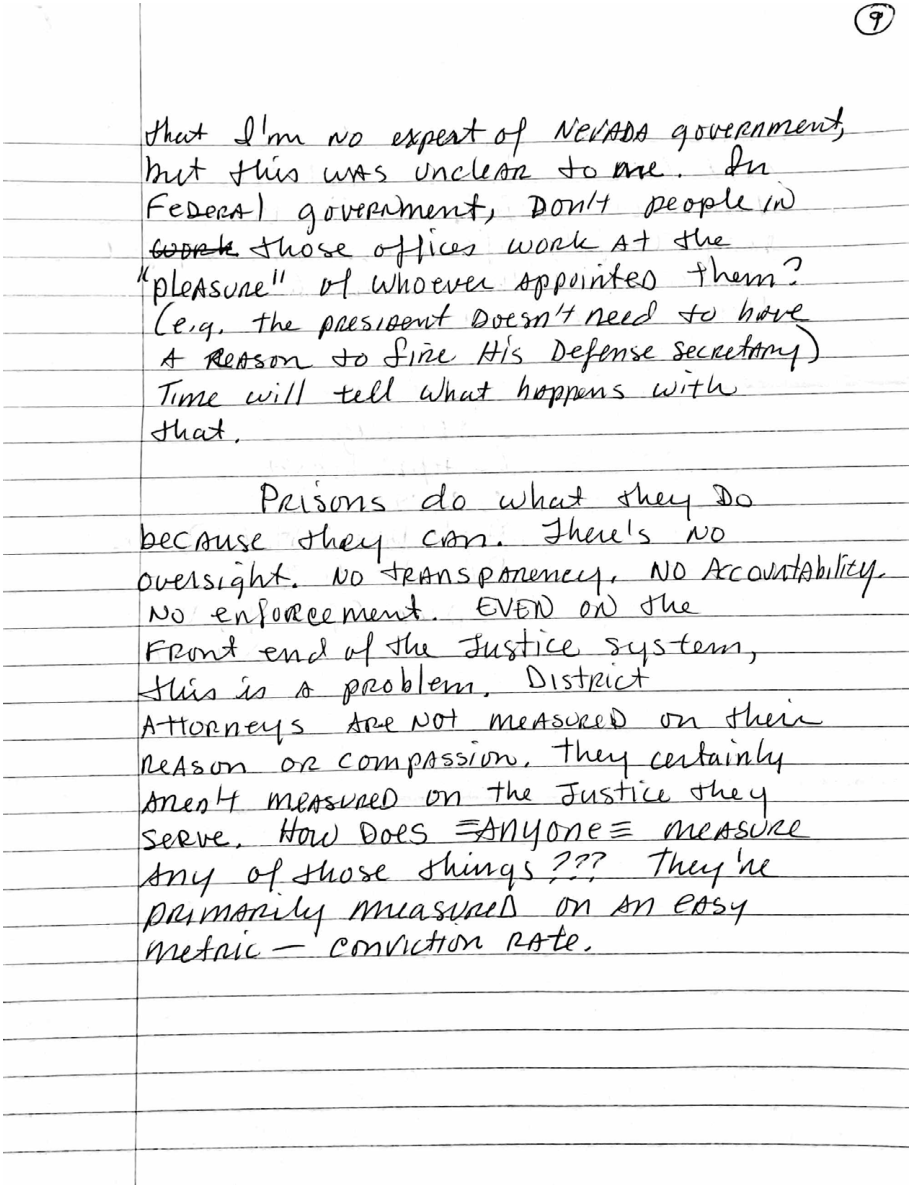 9
that I'm no expert of NEVADA government,
but this was unclear to me. In
Federal government, Don't people in
work those offices work at the
"pleasure" of whoever appointed them?
(e.g. the president Doesn't need to have
a reason to fire His Defense secretary)
Time will tell what happens with
that.
Prisons do what they Do
because they can. There's no
oversight. No transparency. No Accountability.
No enforcement. EVEN ON the
Front end of the Justice system,
this is a problem. District
Attorneys are not measured on their
reason or compassion. They certainly
aren't measured on the Justice they
serve. How Does ≡ANYONE≡ measure
any of those things??? They're
primarily measured on an easy
metric — conviction rate.